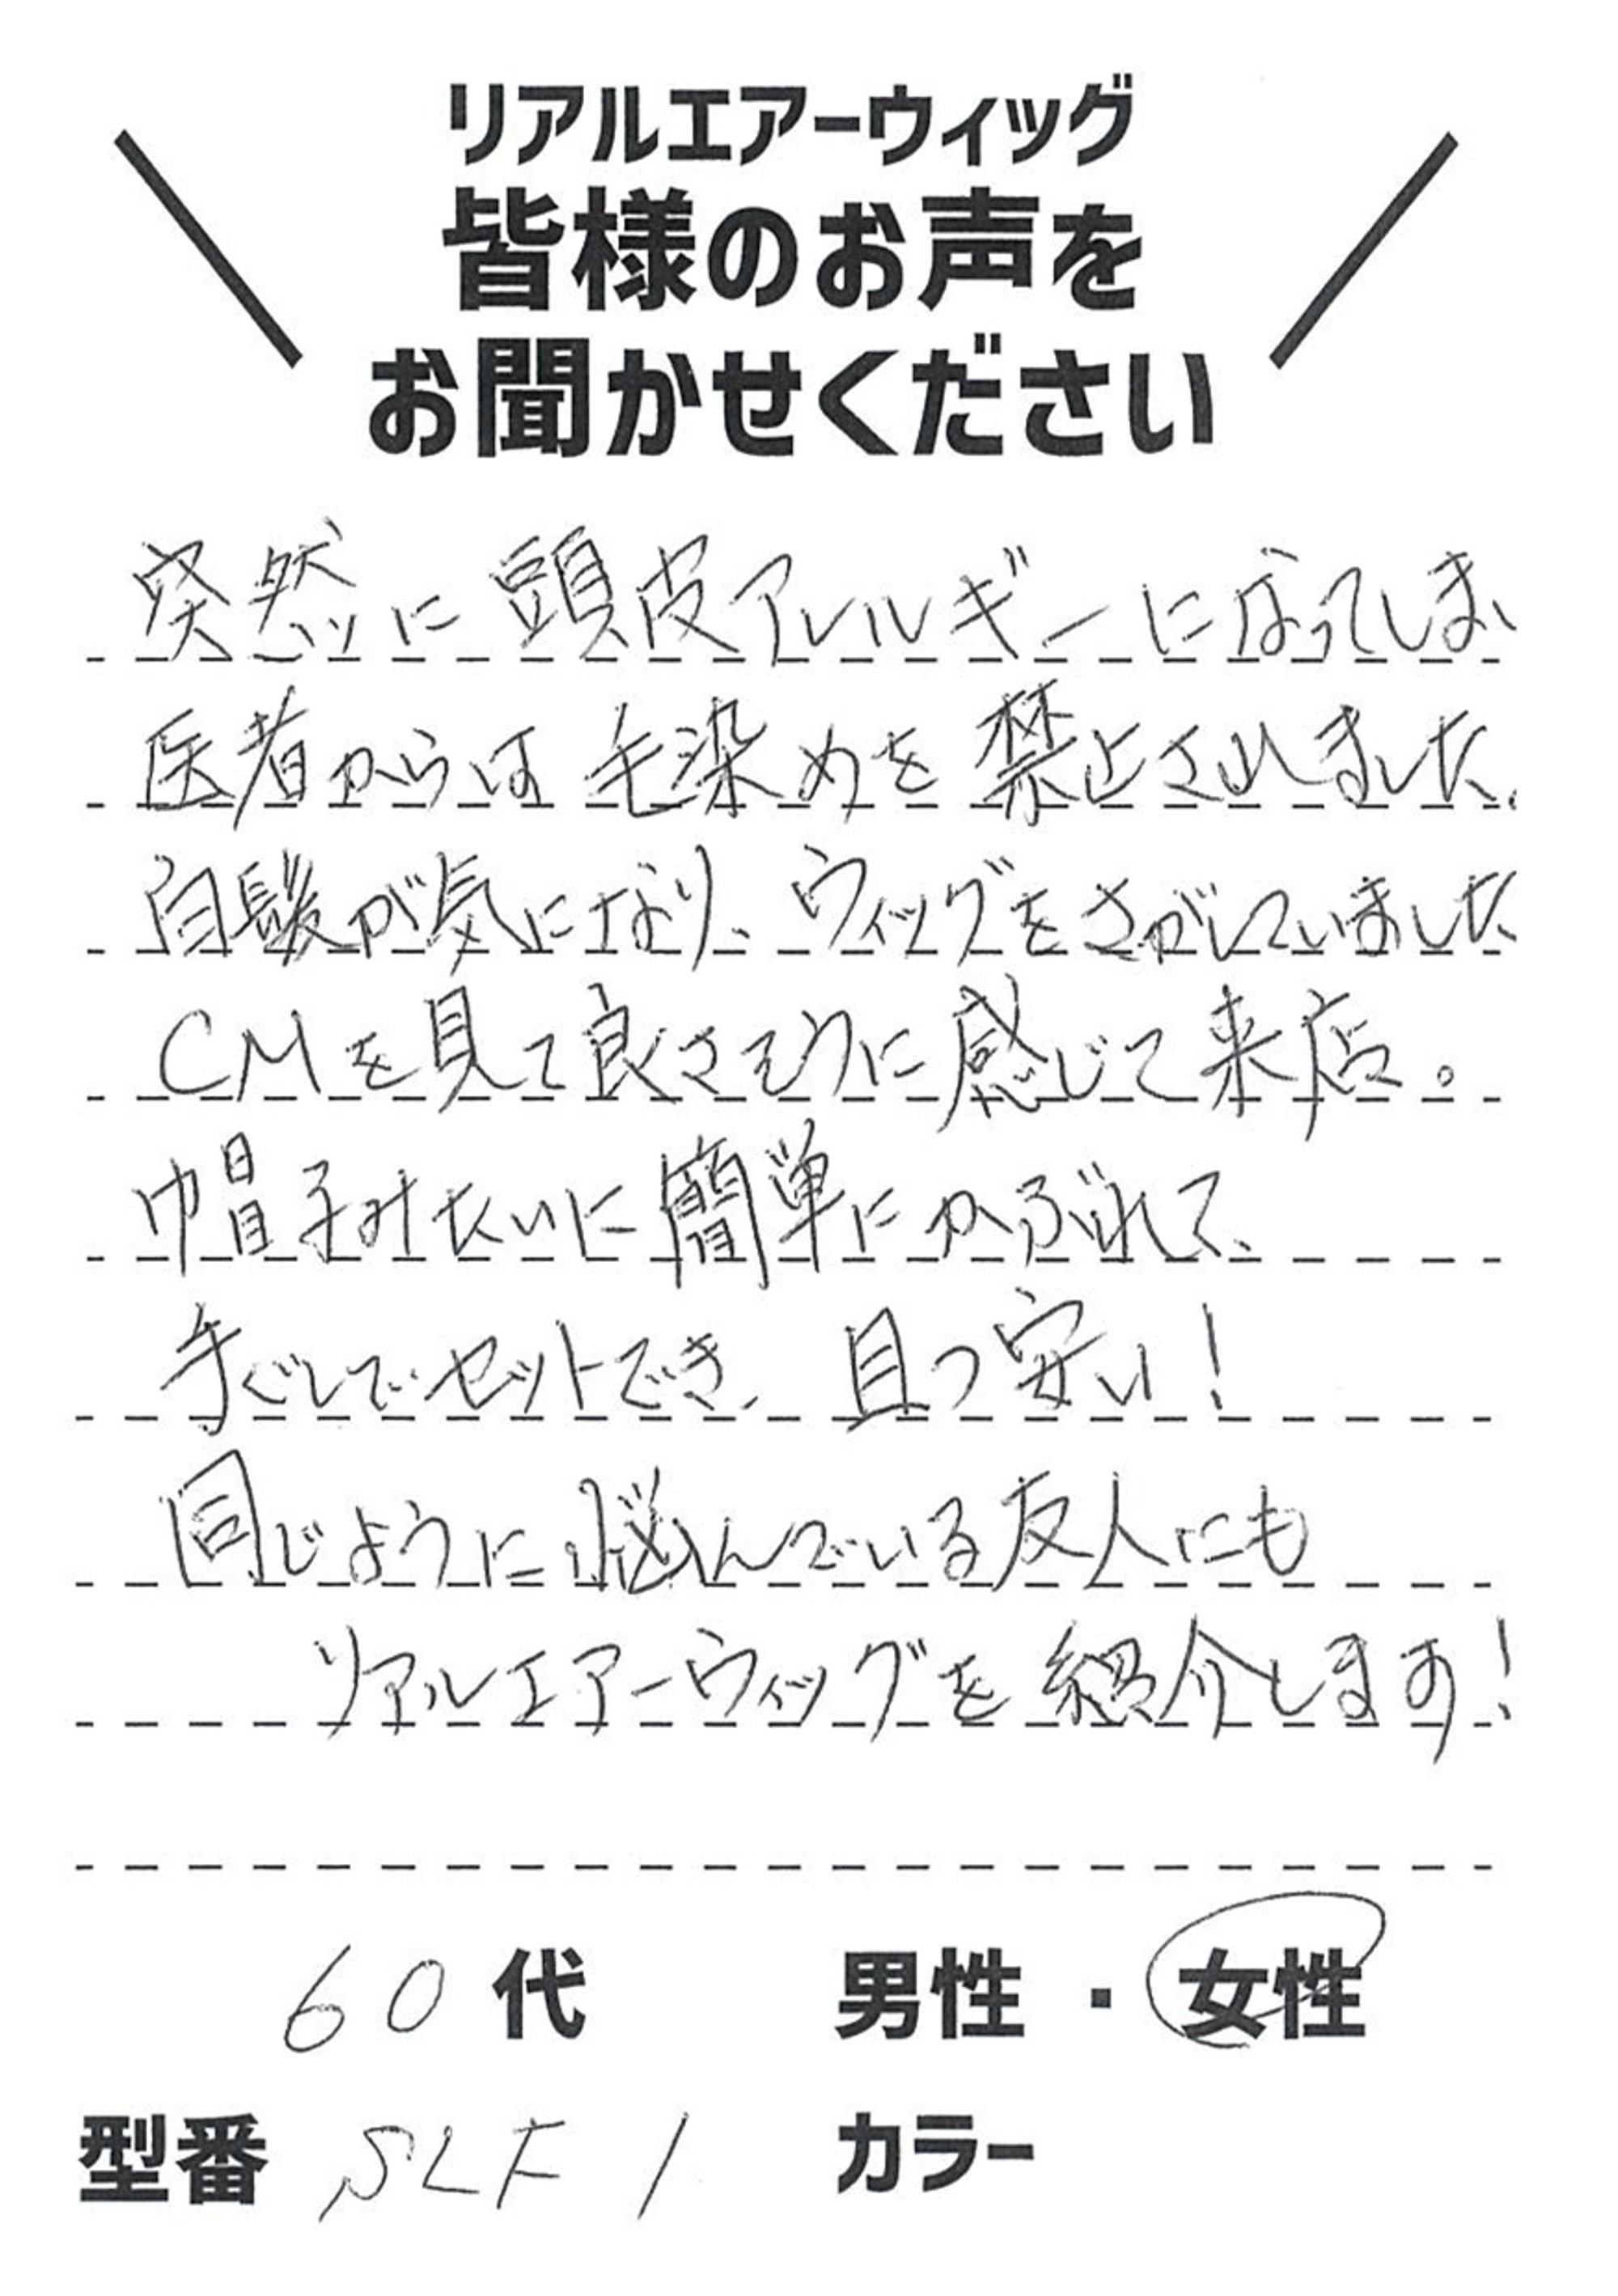 リアルエアーウィッグ
皆様のお声を
お聞かせください
突然に頭皮アレルギーになってしまい
医者からは毛染めを禁止されました。
白髪が気になり、ウィッグをさがしていました
CMを見て良さそうに感じて来店。
帽子みたいに簡単にかぶれて、
手ぐしでセットでき、且つ安い!
同じように悩んでいる友人にも
リアルエアーウィッグを紹介します!
60代 男性・女性
型番 SLF1 カラー